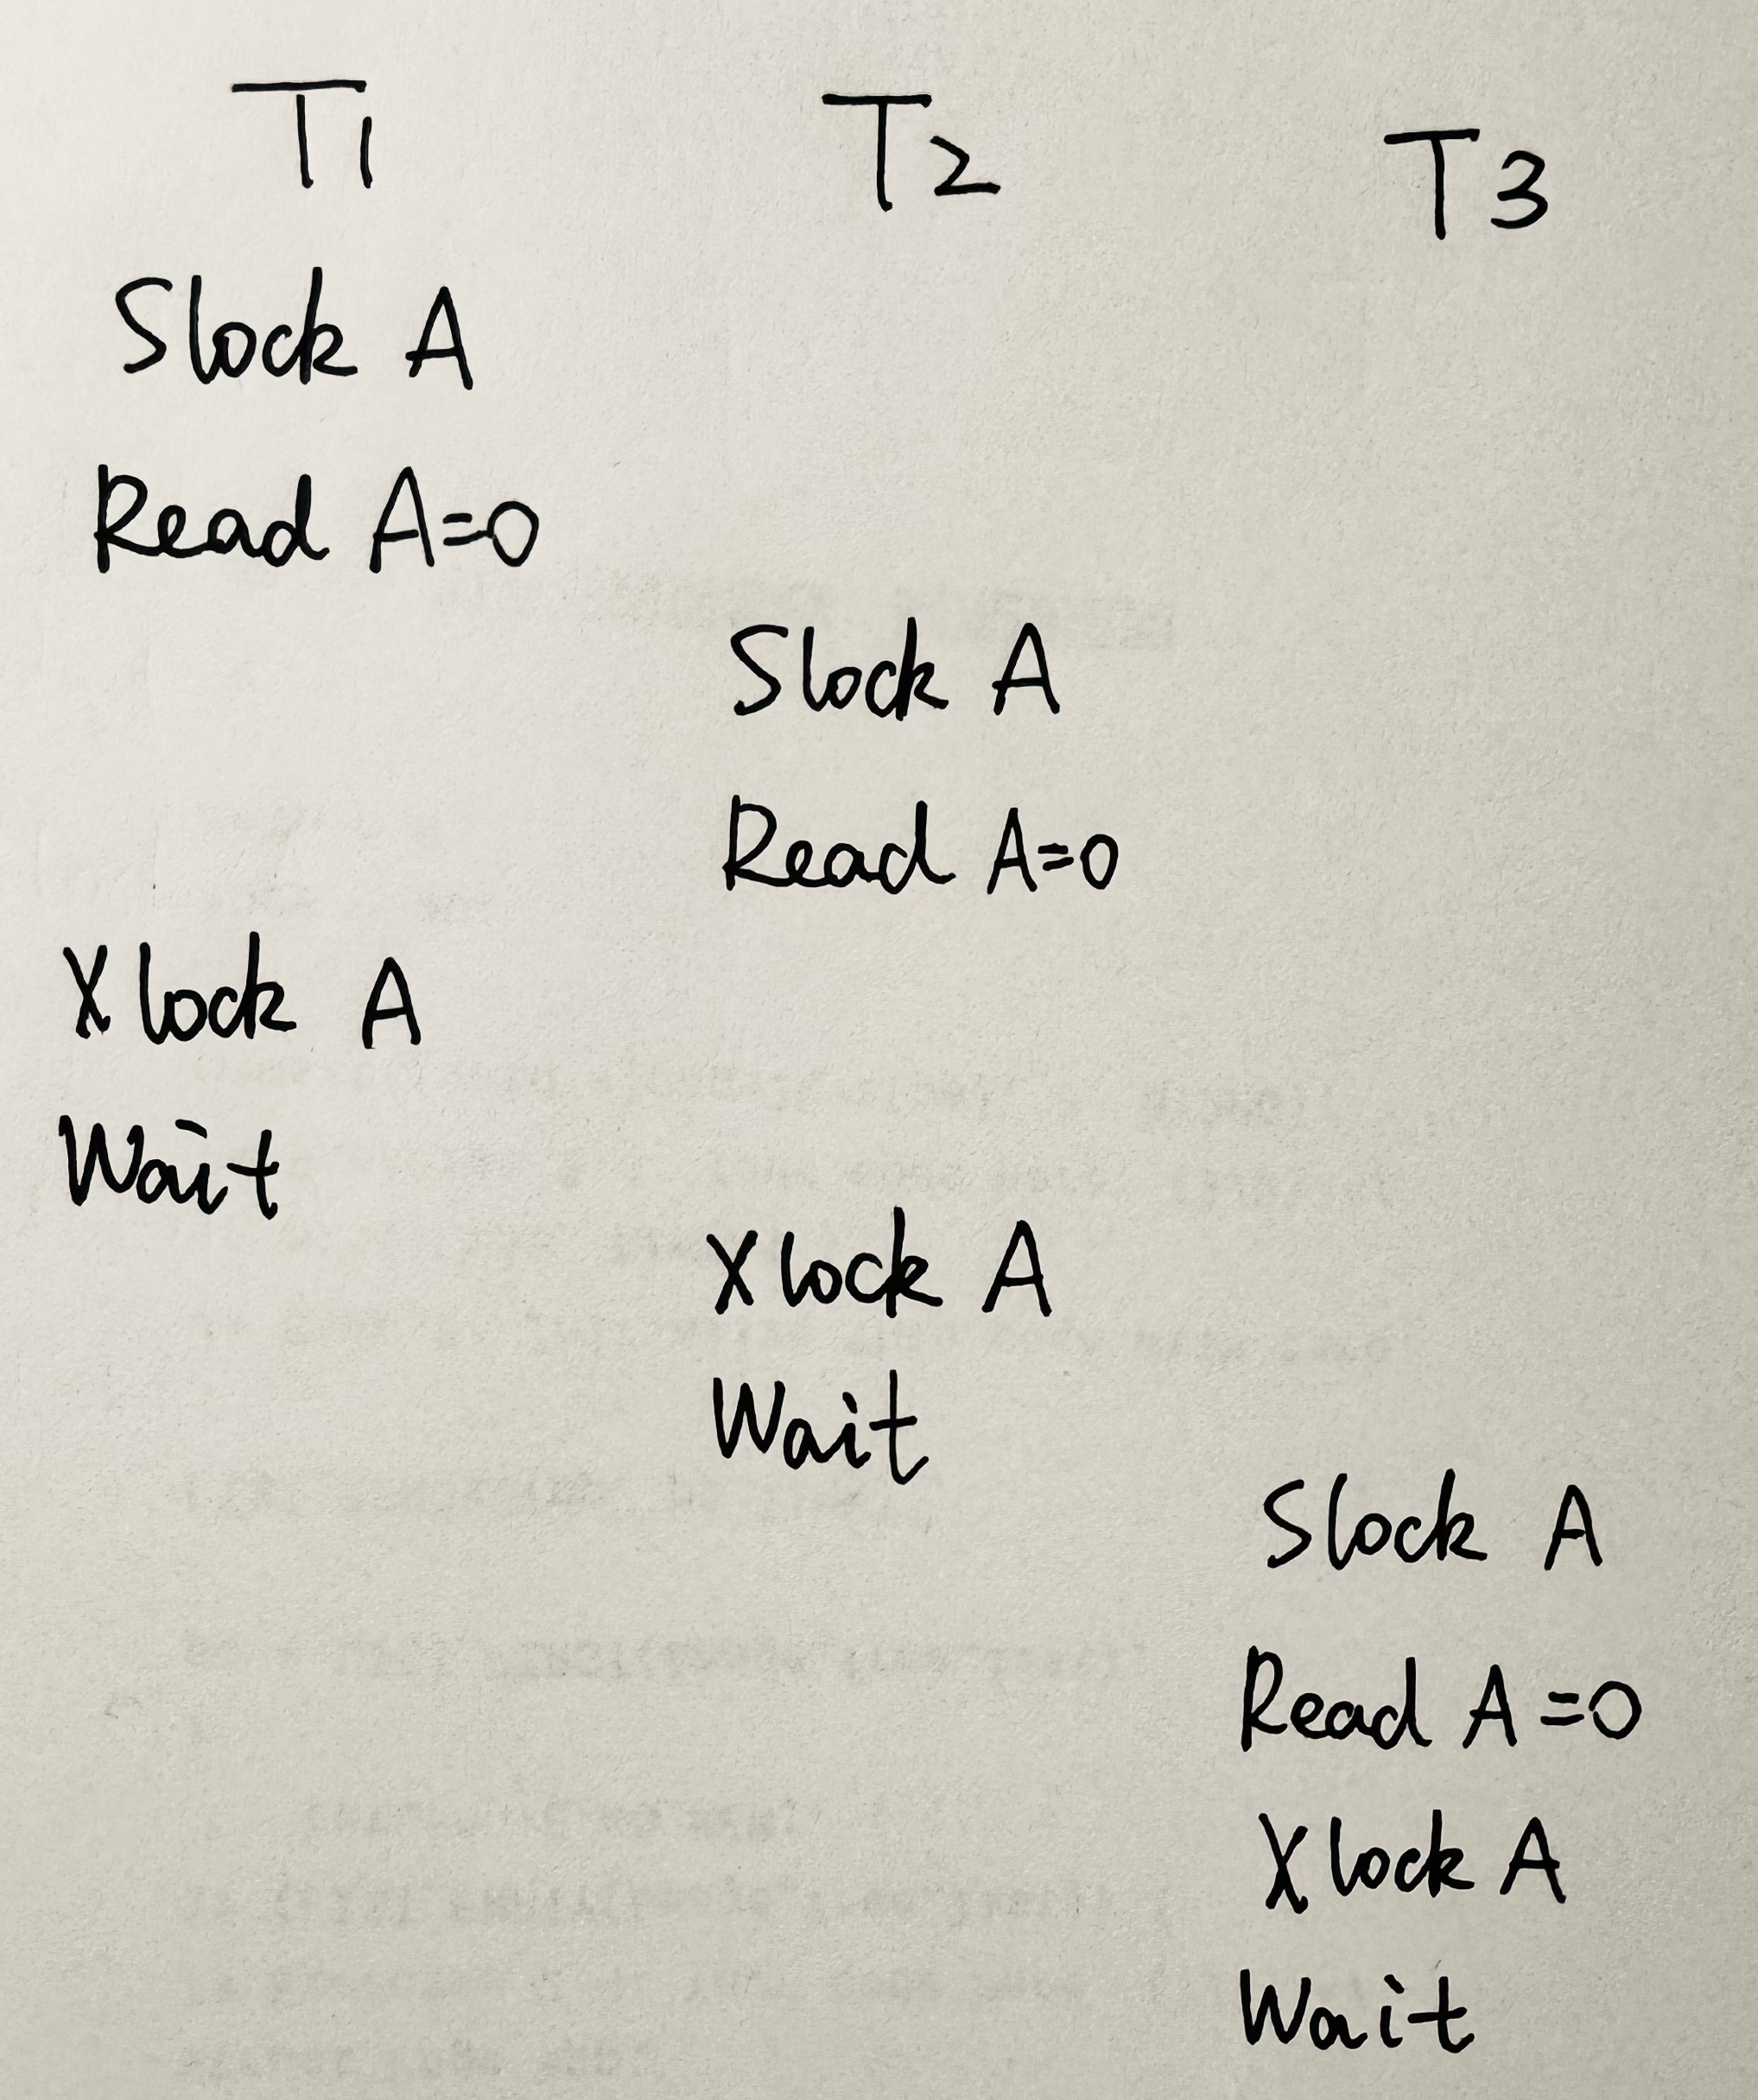 T1 T2 T3
Slock A
Read A=0
Slock A
Read A=0
Xlock A
Wait
Xlock A
Wait
Slock A
Read A=0
Xlock A
Wait